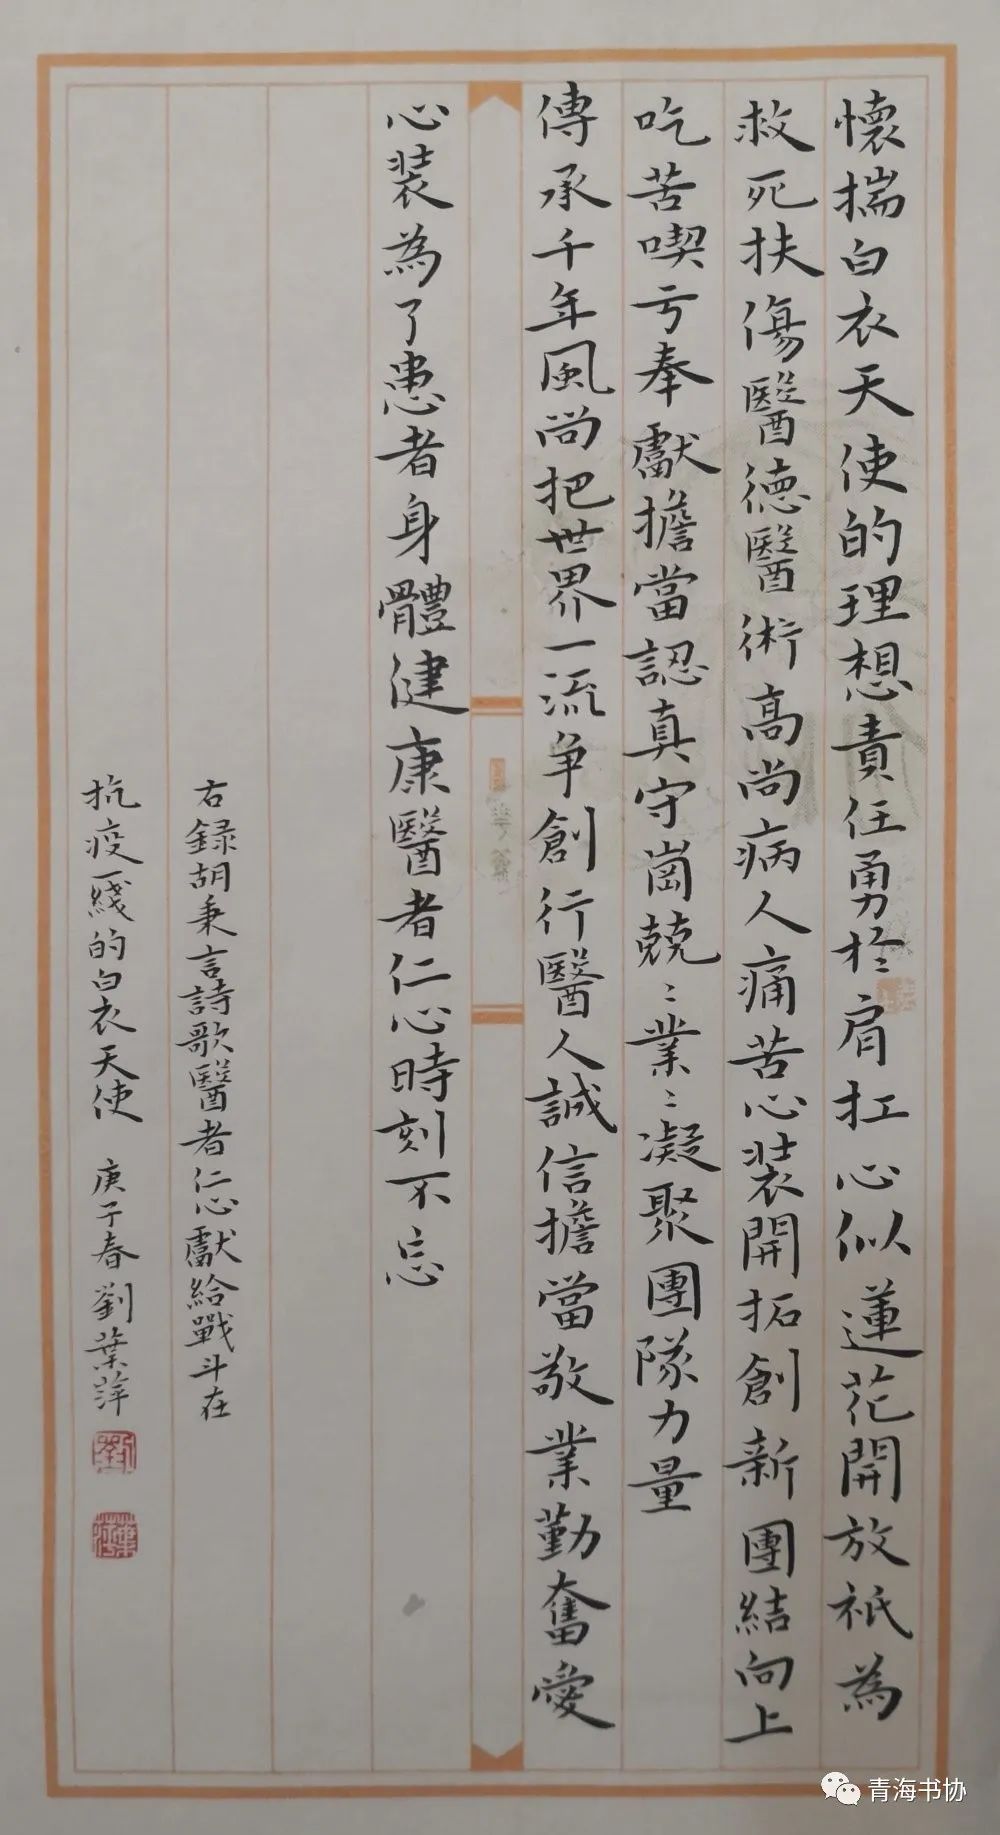 懷揣白衣天使的理想責任勇於肩扛心似蓮花開放祇為
救死扶傷醫德醫術高尚病人痛苦心裝開拓創新團結向上
吃苦喫亏奉獻擔當認真守崗兢〻業〻凝聚團隊力量
傳承千年風尚把世界一流争創行醫人誠信擔當敬業勤奮愛
心裝為了患者身體健康醫者仁心時刻不忘
右録胡秉言詩歌醫者仁心獻給戰斗在
抗疫一綫的白衣天使 庚子春劉葉萍
青海书协